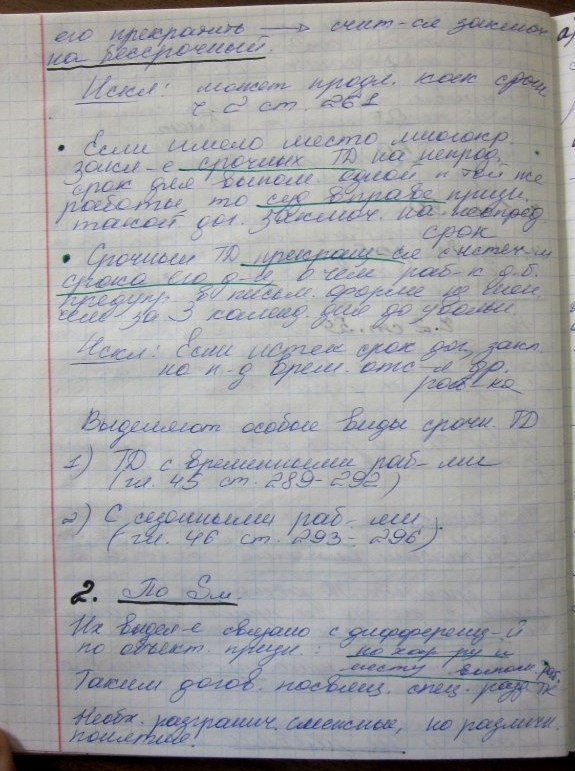 его прекратить → счит-ся заключ
на бессрочный.
Искл: может продл. как срочн
ч. 2 ст. 261
• Если имело место многокр.
закл-е срочных ТД на непрод.
срок для выполн. одной и той же
работы, то суд вправе призн.
такой дог. заключ. на неопред.
срок
• Срочный ТД прекращ-ся с истеч-м
срока его д-я, о чём раб-к д.б.
предупр. в письм. форме не менее
чем за 3 календ. дня до увольн.
Искл: Если истек срок дог, закл.
на п-д врем. отс-я др.
раб-ка
Выделяют особые виды срочн. ТД
1) ТД с временными раб-ми
(гл. 45 ст. 289-292)
2) С сезонными раб-ми.
(гл. 46 ст. 293-296)
2. По Sм.
Их выдел-е связано с дифференц-й
по объект. призн: по хар-ру и
месту выполн. раб.
Таким догов. посвящ. спец. разд. ТК
Необх. разгранич. смежные, но различн.
понятия.